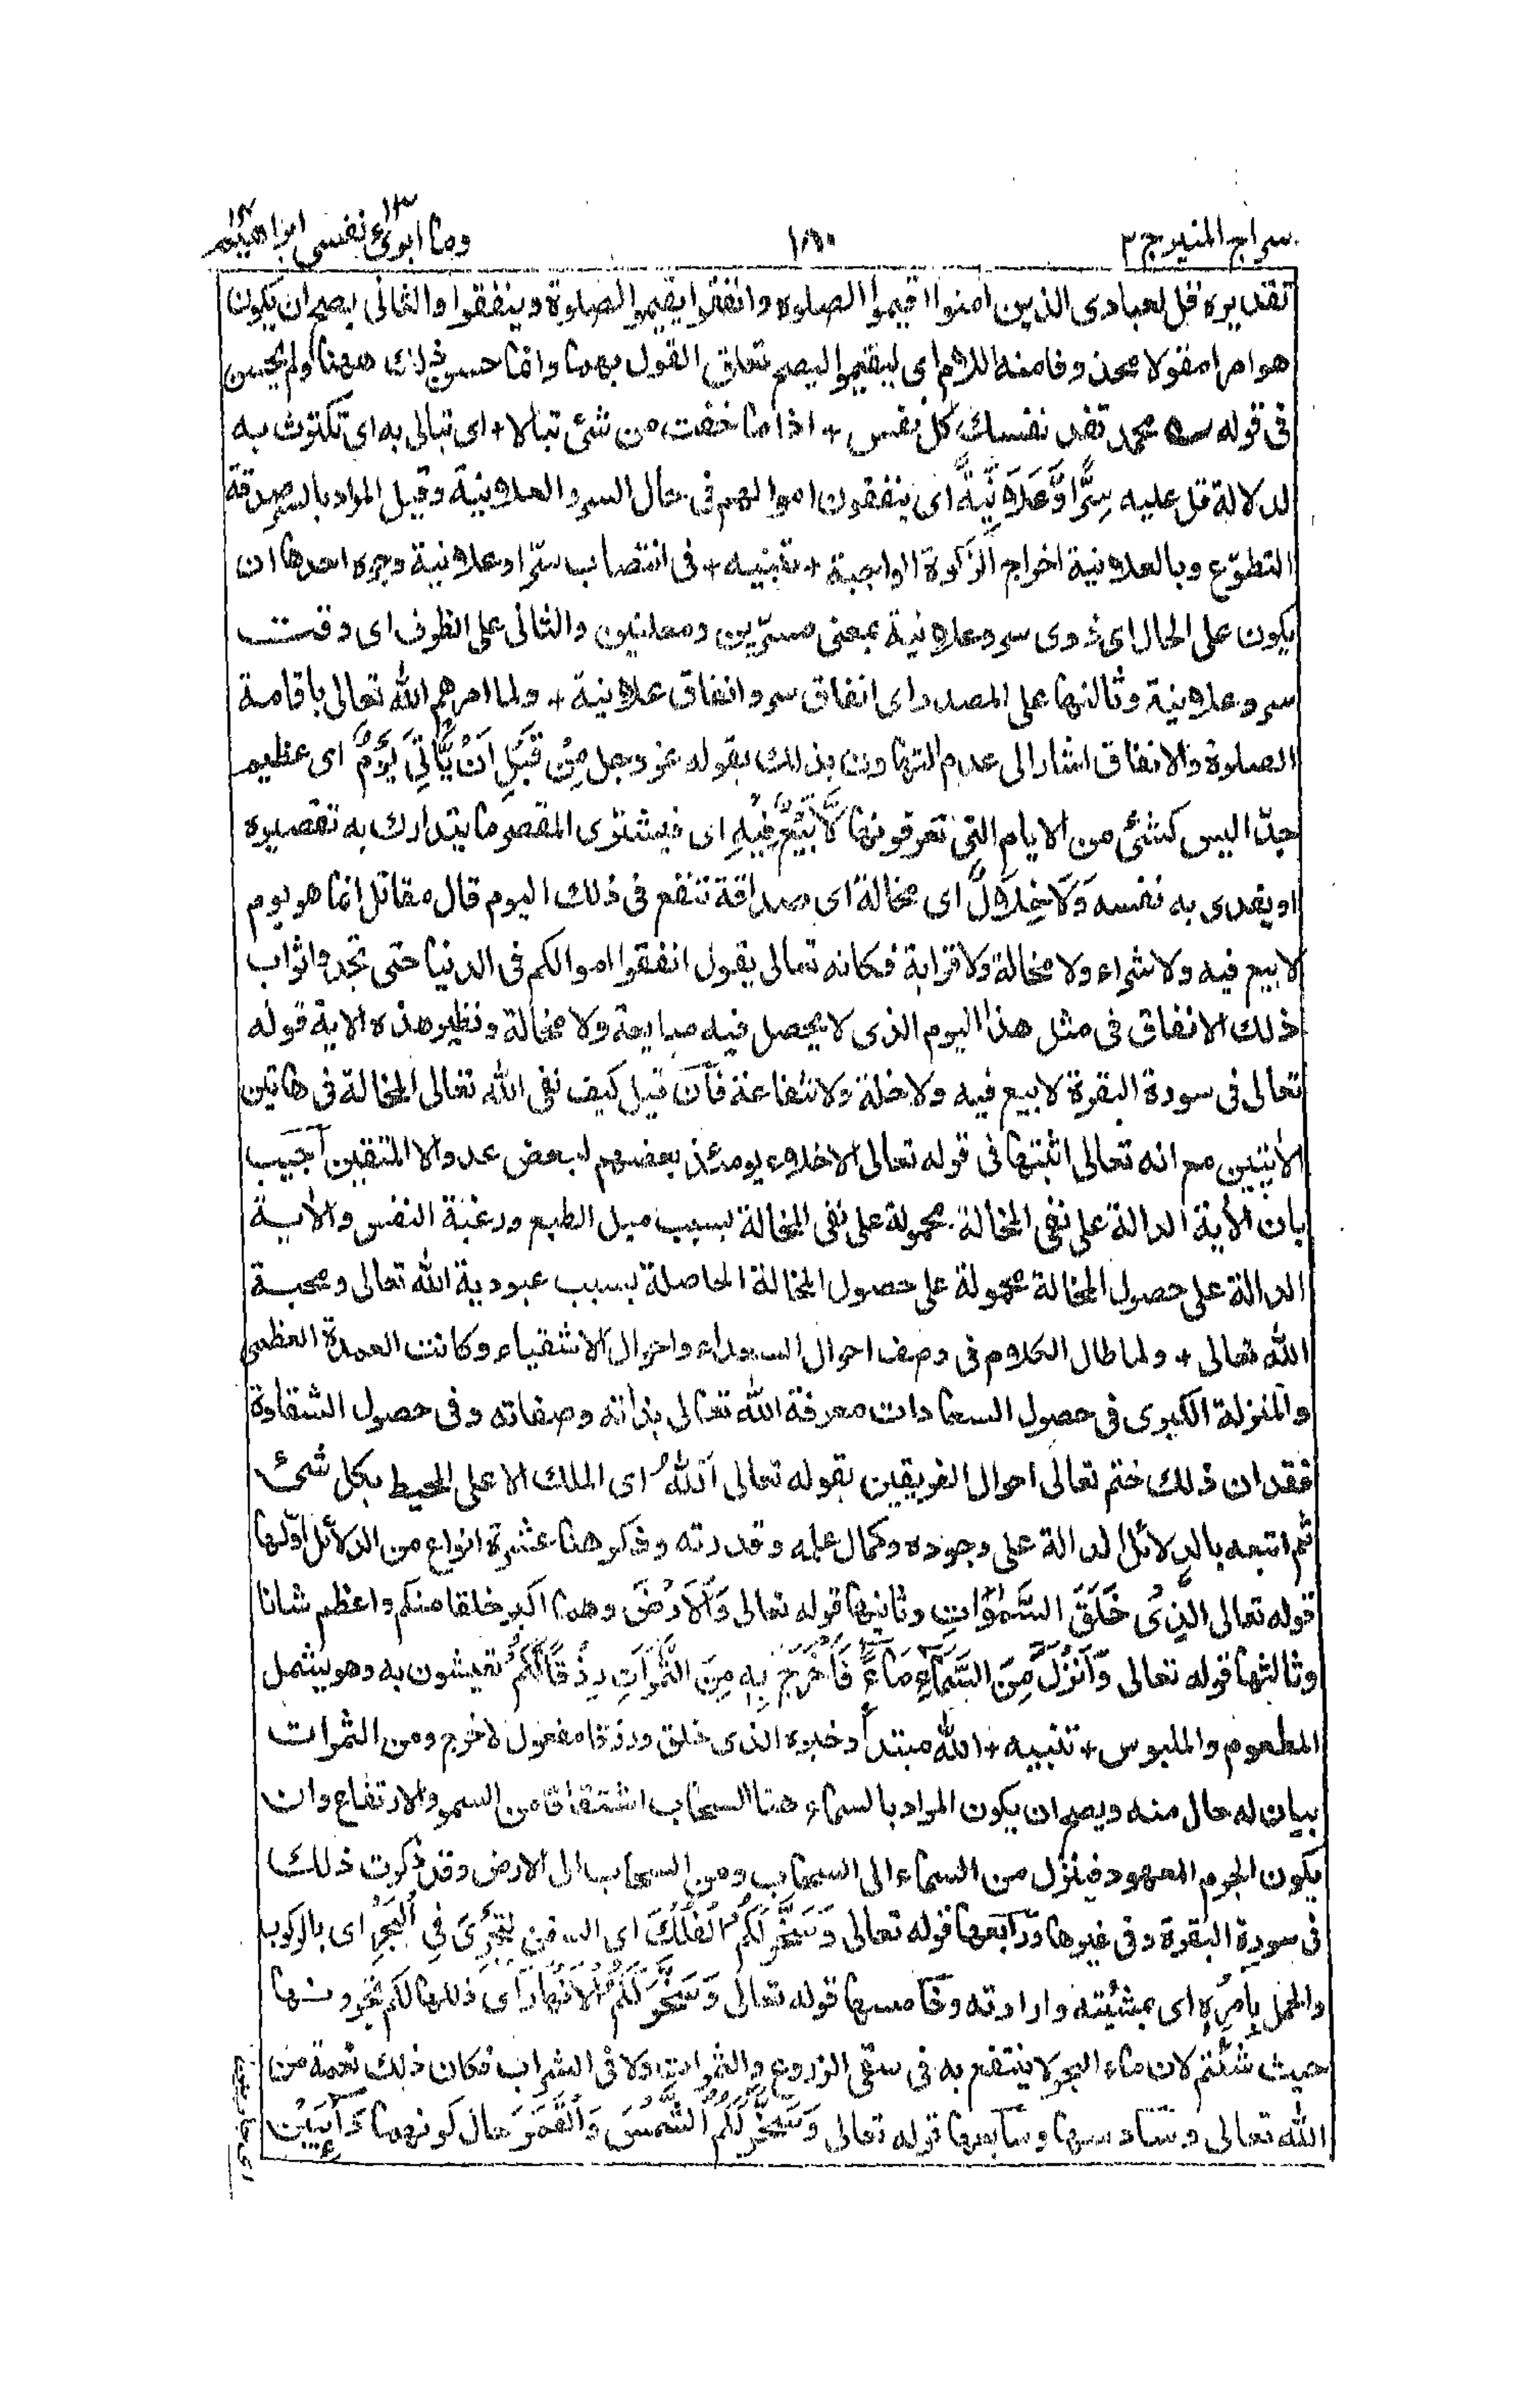 سراج المنير ج ٢
١٨٠
وما ابرئ نفسى ١٣ ابراهيم ١٤
تقديره قل لعبادى الذين امنوا اقيموا الصلوة وانفقوا يقيموا الصلوة وينفقوا والثانى يصح ان يكونا
هو امرا مقولا محذوفا منه اللام اى ليقيموا ليصح تعلق القول بهما وانما حسن ذلك ههنا ولم يحسن
فى قوله محمد تفد نفسك كل نفس + اذا ما خفت من شئ تبالا + اى تبالى به اى تكترث به
لدلالة قل عليه سِرًّا وَّعَلَانِيَةً اى ينفقون اموالهم فى حال السر والعلانية وقيل المراد بالسر صدقة
التطوّع وبالعلانية اخراج الزكوة الواجبة + تنبيه + فى انتصاب سرّا وعلانية وجوه احدها ان
يكون على الحال اى ذوى سر وعلانية بمعنى مسرّين ومعلنين والثانى على الظرف اى وقت
سر وعلانية وثالثها على المصدر اى انفاق سر وانفاق علانية + ولما امرهم الله تعالى باقامة
الصلوة والانفاق اشار الى عدم التهاون بذلك بقوله عز وجل مِنْ قَبْلِ اَنْ يَّاْتِيَ يَوْمٌ اى عظيم
جدّا ليس كشئ من الايام التى تعرفونها لَّا بَيْعٌ فِيْهِ اى فيشترى المقصر ما يتدارك به تقصيره
او يفدى به نفسه وَلَا خِلٰلٌ اى مخالة اى صداقة تنفع فى ذلك اليوم قال مقاتل انما هو يوم
لا بيع فيه ولا شراء ولا مخالة ولا قرابة فكانه تعالى يقول انفقوا اموالكم فى الدنيا حتى تجدوا ثواب
ذلك الانفاق فى مثل هذا اليوم الذى لا يحصل فيه مبايعة ولا مخالة ونظير هذه الاية قوله
تعالى فى سورة البقرة لا بيع فيه ولا خلة ولا شفاعة فان قيل كيف نفى الله تعالى المخالة فى هاتين
الأيتين مع انه تعالى اثبتها فى قوله تعالى الاخلاء يومئذ بعضهم لبعض عدو الا المتقين اجيب
بان الأية الدالة على نفى المخالة محمولة على نفى المخالة بسبب ميل الطبع ورغبة النفس والأية
الدالة على حصول المخالة محمولة على حصول المخالة الحاصلة بسبب عبودية الله تعالى ومحبة
الله تعالى + ولما طال الكلام فى وصف احوال السعداء واحوال الاشقياء وكانت العمدة العظمى
والمنزلة الكبرى فى حصول السعادات معرفة الله تعالى بذاته وصفاته وفى حصول الشقاوة
فقدان ذلك ختم تعالى احوال الفريقين بقوله تعالى اَللّٰهُ اى الملك الاعلى المحيط بكل شئ
ثم اتبعه بالدلائل الدالة على وجوده وكمال علمه وقدرته وذكر هنا عشرة انواع من الدلائل اوّلها
قوله تعالى الَّذِىْ خَلَقَ السَّمٰوٰتِ وثانيها قوله تعالى وَالْاَرْضَ وهما اكبر خلقا منكم واعظم شانا
وثالثها قوله تعالى وَاَنْزَلَ مِنَ السَّمَآءِ مَآءً فَاَخْرَجَ بِهٖ مِنَ الثَّمَرٰتِ رِزْقًا لَّكُمْ تعيشون به وهو يشمل
المطعوم والملبوس + تنبيه + الله مبتدأ وخبره الذى خلق ورزقا مفعول لاخرج ومن الثمرات
بيان له حال منه ويصح ان يكون المراد بالسماء هنا السحاب اشتقاقا من السمو والارتفاع وان
يكون الجرم المعهود فينزل من السماء الى السحاب ومن السحاب الى الارض وقد ذكرت ذلك
فى سورة البقرة وفى غيرها ورابعها قوله تعالى وَسَخَّرَ لَكُمُ الْفُلْكَ اى السفن لِتَجْرِىَ فِى الْبَحْرِ اى بالركوب
والحمل بِاَمْرِهٖ اى بمشيئته وارادته وخامسها قوله تعالى وَسَخَّرَ لَكُمُ الْاَنْهٰرَ اى ذللها لكم تجرونها
حيث شئتم لان ماء البحر لا ينتفع به فى سقى الزروع والثمرات ولا فى الشراب فكان ذلك نعمة من
الله تعالى وسادسها وسابعها قوله تعالى وَسَخَّرَ لَكُمُ الشَّمْسَ وَالْقَمَرَ حال كونهما دَآئِبَيْنِ